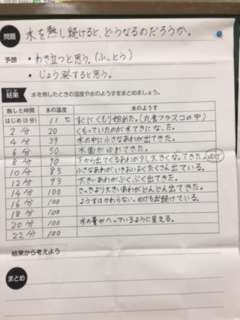 問題 水を熱し続けると、どうなるのだろうか。
予想 ・わき立つと思う。(ふっとう)
・じょう発すると思う。
結果 水を熱したときの温度や水のようすをまとめましょう。
熱した時間 水の温度 水のようす
はじめ(0分) 11℃ すぐにくもり始めた。(丸底フラスコの中)
2分 20 くもっていたのが水てきになった。
4分 39 水の中に小さなあわが出てきた。
6分 50 水面がゆれてきた。
8分 90 下から出てくるあわが少し大きくなってきた。
10分 85 小さなあわがいきおいよくたくさん出ている。
12分 93 大きいあわがぶくぶく出てきた。
14分 100 さっきより大きいあわがどんどん出てきた。
16分 100 ようすはかわらない。
18分 100
20分 100 水の量がへっているように見える。
22分 100
結果から考えよう
まとめ